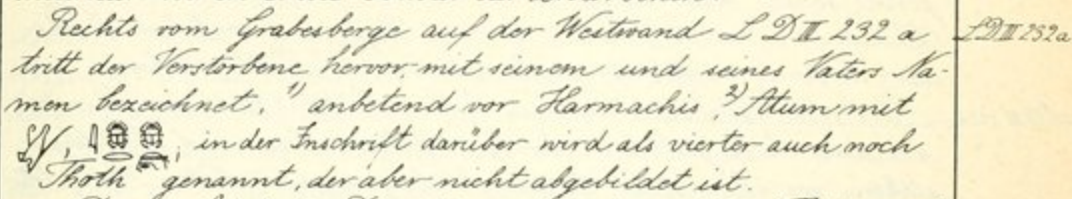 Rechts vom Grabesberge auf der Westwand L D III 232 a
L D III 232 a
tritt der Verstorbene hervor, mit seinem und seines Vaters Na-
men bezeichnet, 1) anbetend vor Harmachis, 2) Atum mit
, in der Inschrift darüber wird als vierter auch noch
Thoth genannt, der aber nicht abgebildet ist.